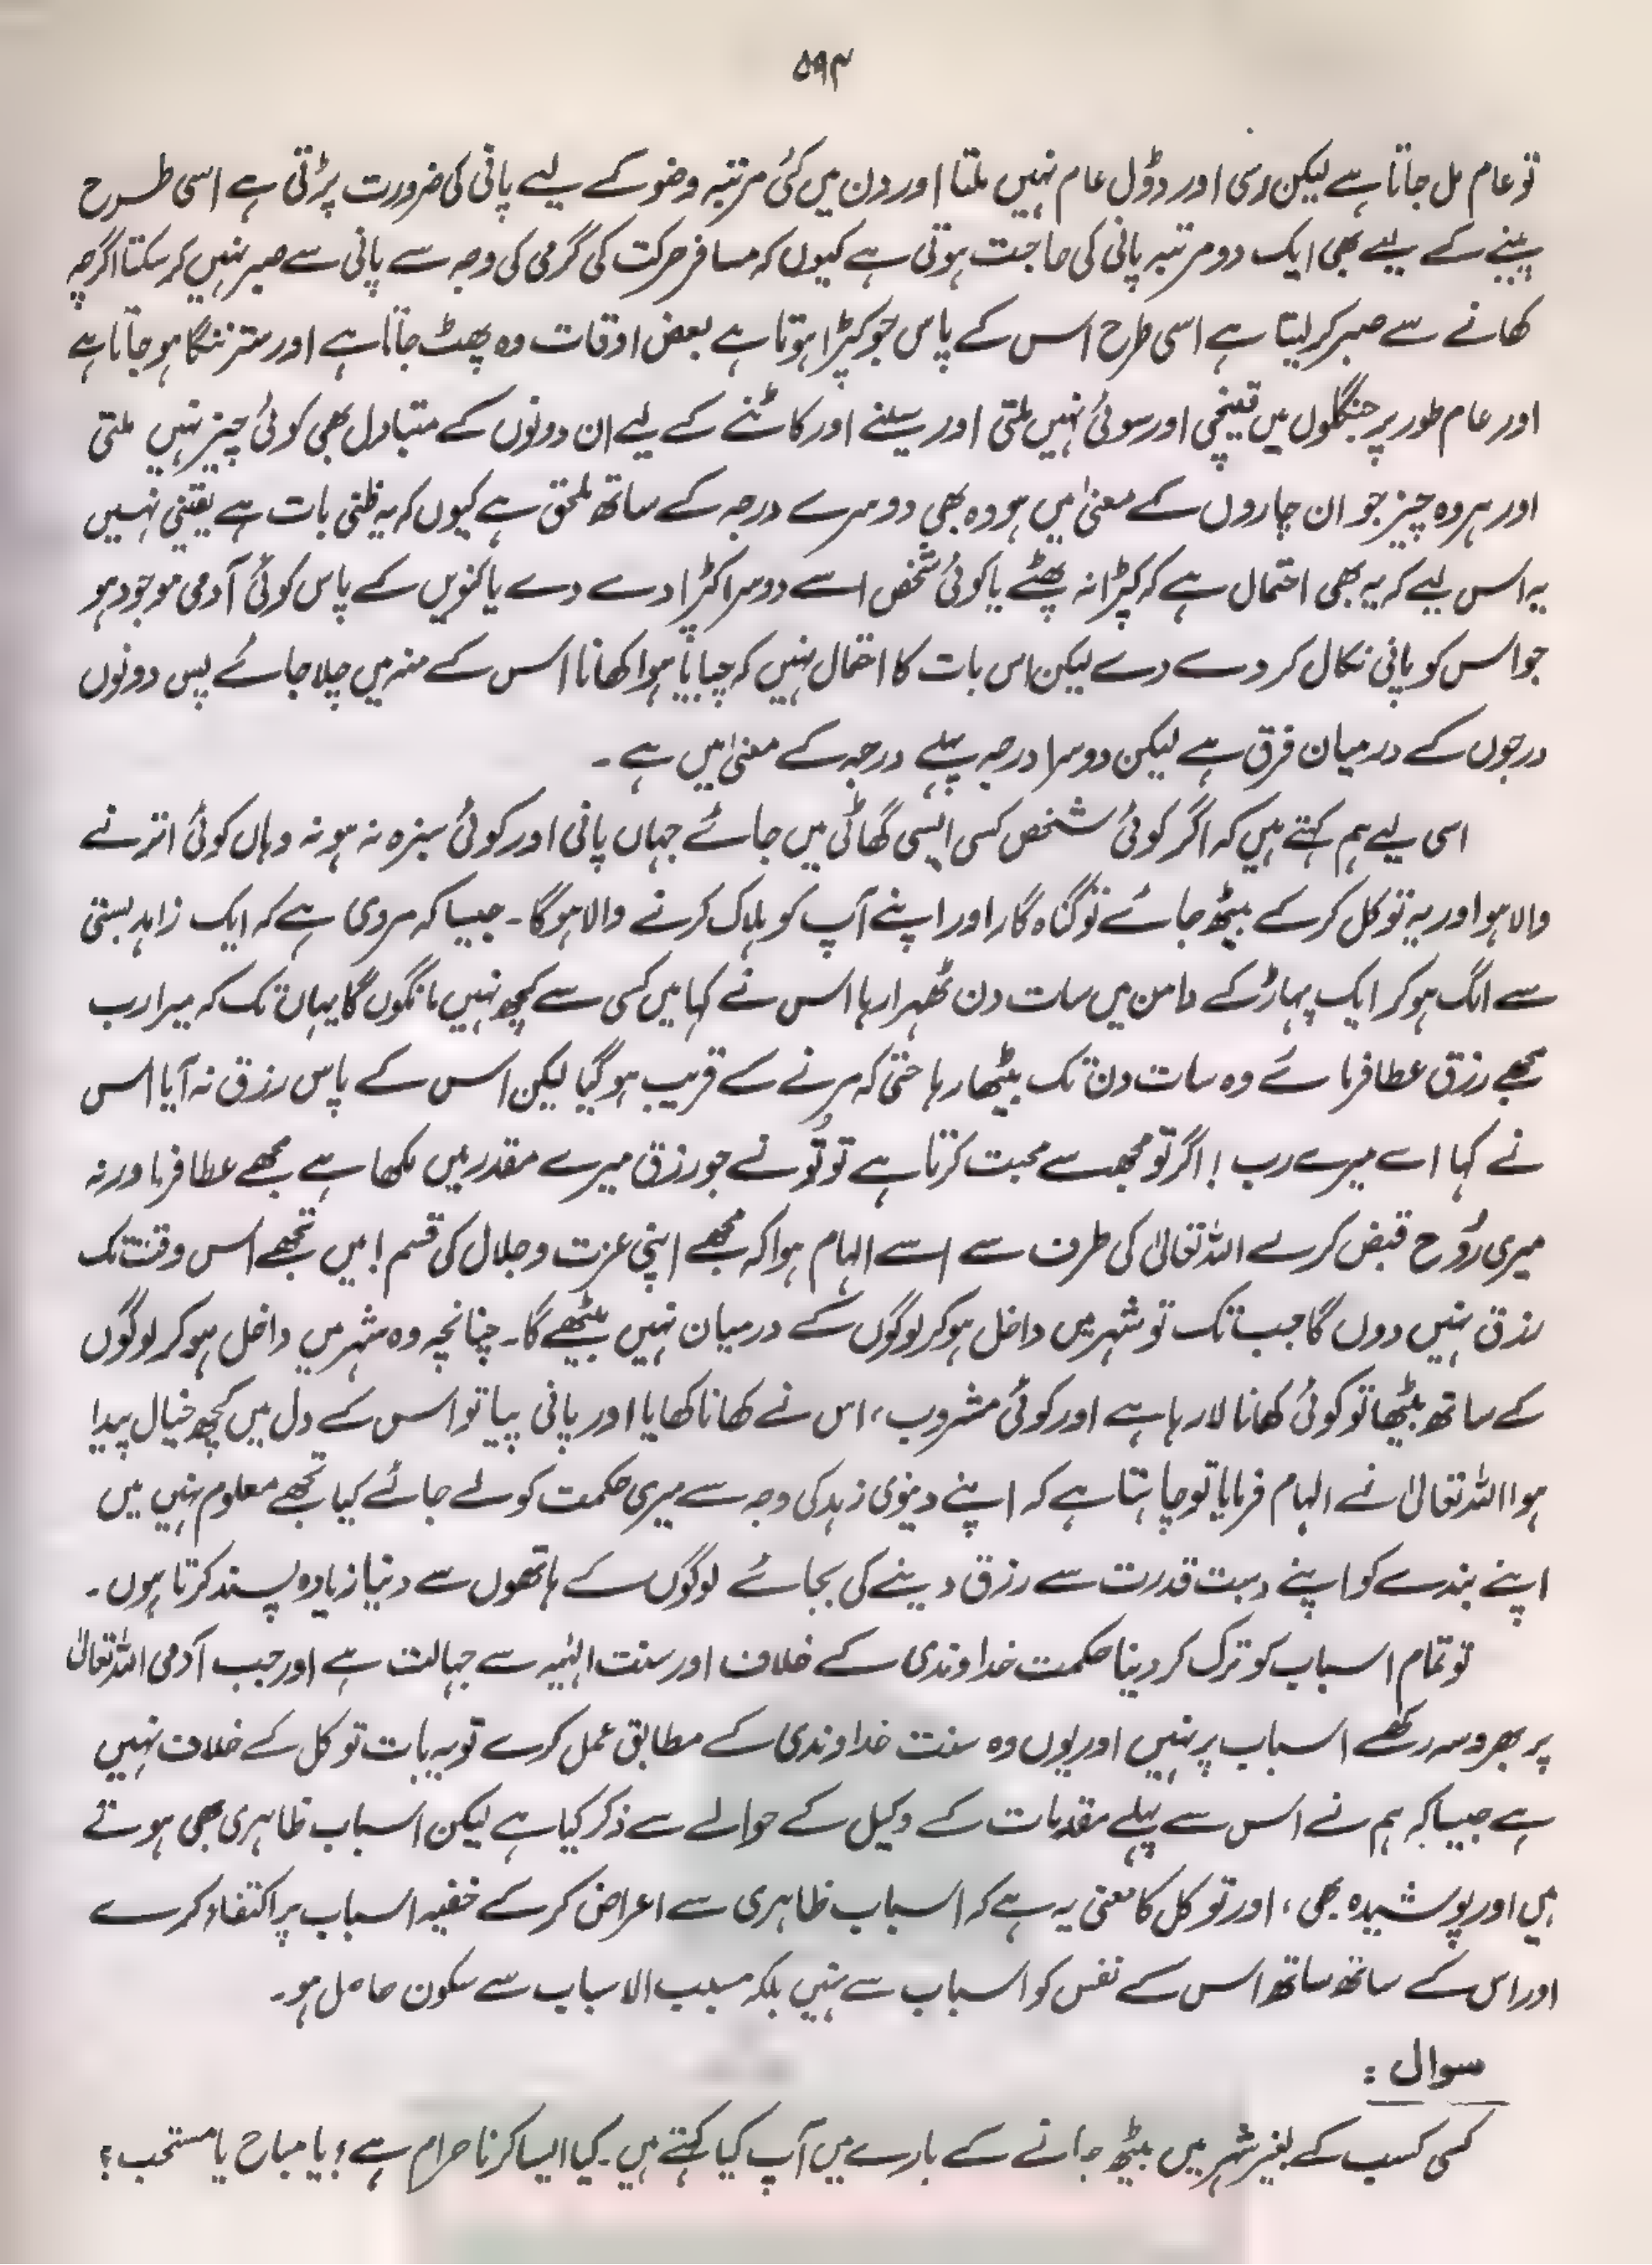 ۵۹۳
تو عام مل جاتا ہے لیکن رسی اور ڈول عام نہیں ملتا اور دن میں کئی مرتبہ وضو کے لیے پانی کی ضرورت پڑتی ہے اسی طرح
پینے کے لیے بھی ایک دو مرتبہ پانی کی حاجت ہوتی ہے کیوں کہ مسافر حرکت کی گرمی کی وجہ سے پانی سے صبر نہیں کر سکتا اگرچہ
کھانے سے صبر کر لیتا ہے اسی طرح اس کے پاس جو کپڑا ہوتا ہے بعض اوقات وہ پھٹ جاتا ہے اور ستر ننگا ہو جاتا ہے
اور عام طور پر جنگلوں میں قینچی اور سوئی نہیں ملتی اور سینے اور کاٹنے کے لیے ان دونوں کے متبادل بھی کوئی چیز نہیں ملتی
اور ہر وہ چیز جو ان چاروں کے معنیٰ میں ہو وہ بھی دوسرے درجہ کے ساتھ ملحق ہے کیوں کہ یہ ظنی بات ہے یقینی نہیں
یہ اس لیے کہ یہ بھی احتمال ہے کہ کپڑا نہ پھٹے یا کوئی شخص اسے دوسرا کپڑا دے دے یا کنویں کے پاس کوئی آدمی موجود ہو
جو اس کو پانی نکال کر دے دے لیکن اس بات کا احتمال نہیں کہ چبایا ہوا کھانا اس کے منہ میں چلا جائے پس دونوں
درجوں کے درمیان فرق ہے لیکن دوسرا درجہ پہلے درجہ کے معنیٰ میں ہے ۔
اسی لیے ہم کہتے ہیں کہ اگر کوئی شخص کسی ایسی گھاٹی میں جائے جہاں پانی اور کوئی سبزہ نہ ہو نہ وہاں کوئی اترنے
والا ہو اور یہ توکل کر کے بیٹھ جائے تو گناہ گار اور اپنے آپ کو ہلاک کرنے والا ہو گا۔ جیسا کہ مروی ہے کہ ایک زاہد بستی
سے الگ ہو کر ایک پہاڑ کے دامن میں سات دن ٹھہرا رہا اس نے کہا میں کسی سے کچھ نہیں مانگوں گا یہاں تک کہ میرا رب
مجھے رزق عطا فرمائے وہ سات دن تک بیٹھا رہا حتیٰ کہ مرنے کے قریب ہو گیا لیکن اس کے پاس رزق نہ آیا اس
نے کہا اے میرے رب ! اگر تو مجھ سے محبت کرتا ہے تو تُو نے جو رزق میرے مقدر میں لکھا ہے مجھے عطا فرما ورنہ
میری رُوح قبض کر لے اللہ تعالیٰ کی طرف سے اسے الہام ہوا کہ مجھے اپنی عزت و جلال کی قسم ! میں تجھے اس وقت تک
رزق نہیں دوں گا جب تک تو شہر میں داخل ہو کر لوگوں کے درمیان نہیں بیٹھے گا۔ چنانچہ وہ شہر میں داخل ہو کر لوگوں
کے ساتھ بیٹھا تو کوئی کھانا لا رہا ہے اور کوئی مشروب، اس نے کھانا کھایا اور پانی پیا تو اس کے دل میں کچھ خیال پیدا
ہوا اللہ تعالیٰ نے الہام فرمایا تو چاہتا ہے کہ اپنے دینوی زہد کی وجہ سے میری حکمت کو لے جائے کیا تجھے معلوم نہیں میں
اپنے بندے کو اپنے دست قدرت سے رزق دینے کی بجائے لوگوں کے ہاتھوں سے دینا زیادہ پسند کرتا ہوں۔
تو تمام اسباب کو ترک کر دینا حکمت خداوندی کے خلاف اور سنت الٰہیہ سے جہالت ہے اور جب آدمی اللہ تعالیٰ
پر بھروسہ رکھے اسباب پر نہیں اور یوں وہ سنت خداوندی کے مطابق عمل کرے تو یہ بات توکل کے خلاف نہیں
ہے جیسا کہ ہم نے اس سے پہلے مقدمات کے وکیل کے حوالے سے ذکر کیا ہے لیکن اسباب ظاہری بھی ہوتے
ہیں اور پوشیدہ بھی، اور توکل کا معنی یہ ہے کہ اسباب ظاہری سے اعراض کر کے خفیہ اسباب پر اکتفاء کرے
اور اس کے ساتھ ساتھ اس کے نفس کو اسباب سے نہیں بلکہ مسبب الاسباب سے سکون حاصل ہو۔
سوال :
کسی کسب کے بغیر شہر میں بیٹھ جانے کے بارے میں آپ کیا کہتے ہیں۔ کیا ایسا کرنا حرام ہے ؟ یا مباح یا مستحب ؟